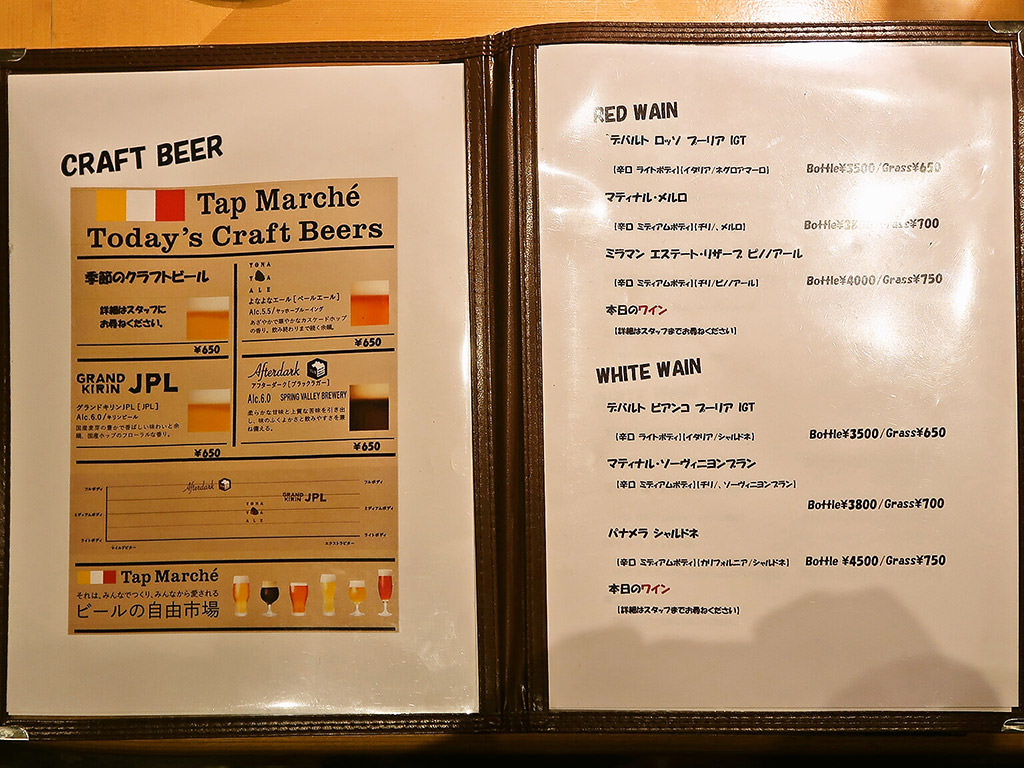 CRAFT BEER
Tap Marché
Today's Craft Beers
季節のクラフトビール
詳細はスタッフに
お尋ねください。
¥650
YONA
YONA
ALE
よなよなエール [ペールエール]
Alc.5.5/ヤッホーブルーイング
あざやかで華やかなカスケードホップ
の香り。飲み終わりまで続く余韻。
¥650
GRAND
KIRIN JPL
グランドキリンJPL [JPL]
Alc.6.0/キリンビール
国産麦芽の豊かで香ばしい味わいと余
韻、国産ホップのフローラルな香り。
¥650
Afterdark
アフターダーク [ブラックラガー]
Alc.6.0 SPRING VALLEY BREWERY
柔らかな甘味と上質な苦味を引き出
し、味のふくよかさと飲みやすさを兼
ね備える。
¥650
フルボディ
ミディアムボディ
ライトボディ
Afterdark
GRAND
KIRIN JPL
YONA
YONA
ALE
フルボディ
ミディアムボディ
ライトボディ
マイルドビター
エクストラビター
Tap Marché
それは、みんなでつくり、みんなから愛される
ビールの自由市場
RED WAIN
デパルト ロッソ プーリア IGT
【辛口 ライトボディ】【イタリア/ネグロアマーロ】 Bottle¥3500/Grass¥650
マティナル・メルロ
【辛口 ミディアムボディ】【チリ/、メルロ】 Grass¥700
ミラマン エステート・リザーブ ピノノアール
【辛口 ミディアムボディ】【チリ/ピノノアール】 Bottle¥4000/Grass¥750
本日のワイン
【詳細はスタッフまでお尋ねください】
WHITE WAIN
デパルト ビアンコ プーリア IGT
【辛口 ライトボディ】【イタリア/シャルドネ】 Bottle¥3500/Grass¥650
マティナル・ソーヴィニヨンブラン
【辛口 ミディアムボディ】【チリ/、ソーヴィニヨンブラン】
Bottle¥3800/Grass¥700
パナメラ シャルドネ
【辛口 ミディアムボディ】【カリフォルニア/シャルドネ】 Bottle ¥4500/Grass¥750
本日のワイン
【詳細はスタッフまでお尋ねください】